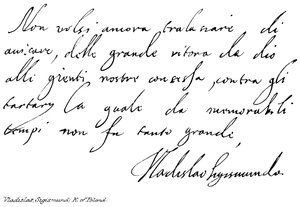 Non volsi ancora tralasciare di
avisare, delle grande vitora da dio
alli genti nostre concessa, contra gli
tartary la quale da memorabili
tempi non fu tanto grande,
Vladislao Sigismundo.
Vladislas, Sigismund; K. of Poland.